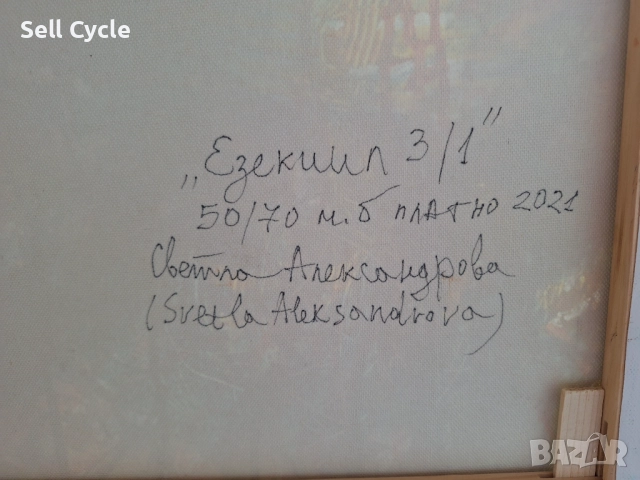 Sell Cycle
„Езекиил 3/1"
50/70 м.б платно 2021
Светла Александрова
(Svetla Aleksandrova)
BAZAR